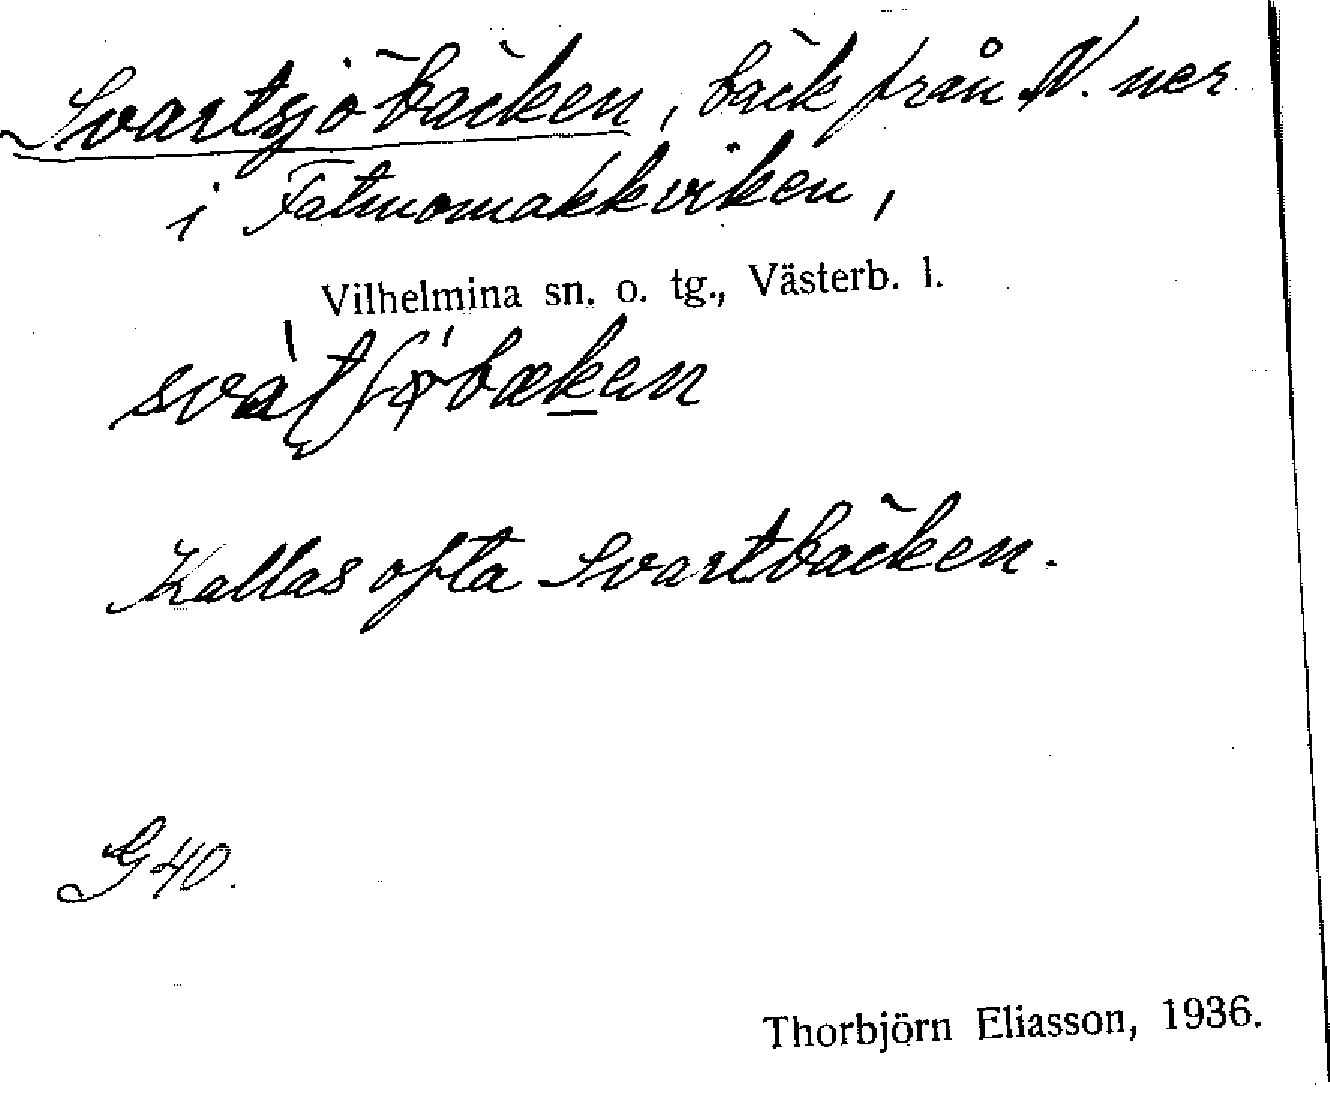 Svartsjöbäcken, bäck från N. ner
i Fatmomakkviken,
Vilhelmina sn. o. tg., Västerb. l.
Kallas ofta Svartbäcken.
G 40.
Thorbjörn Eliasson, 1936.